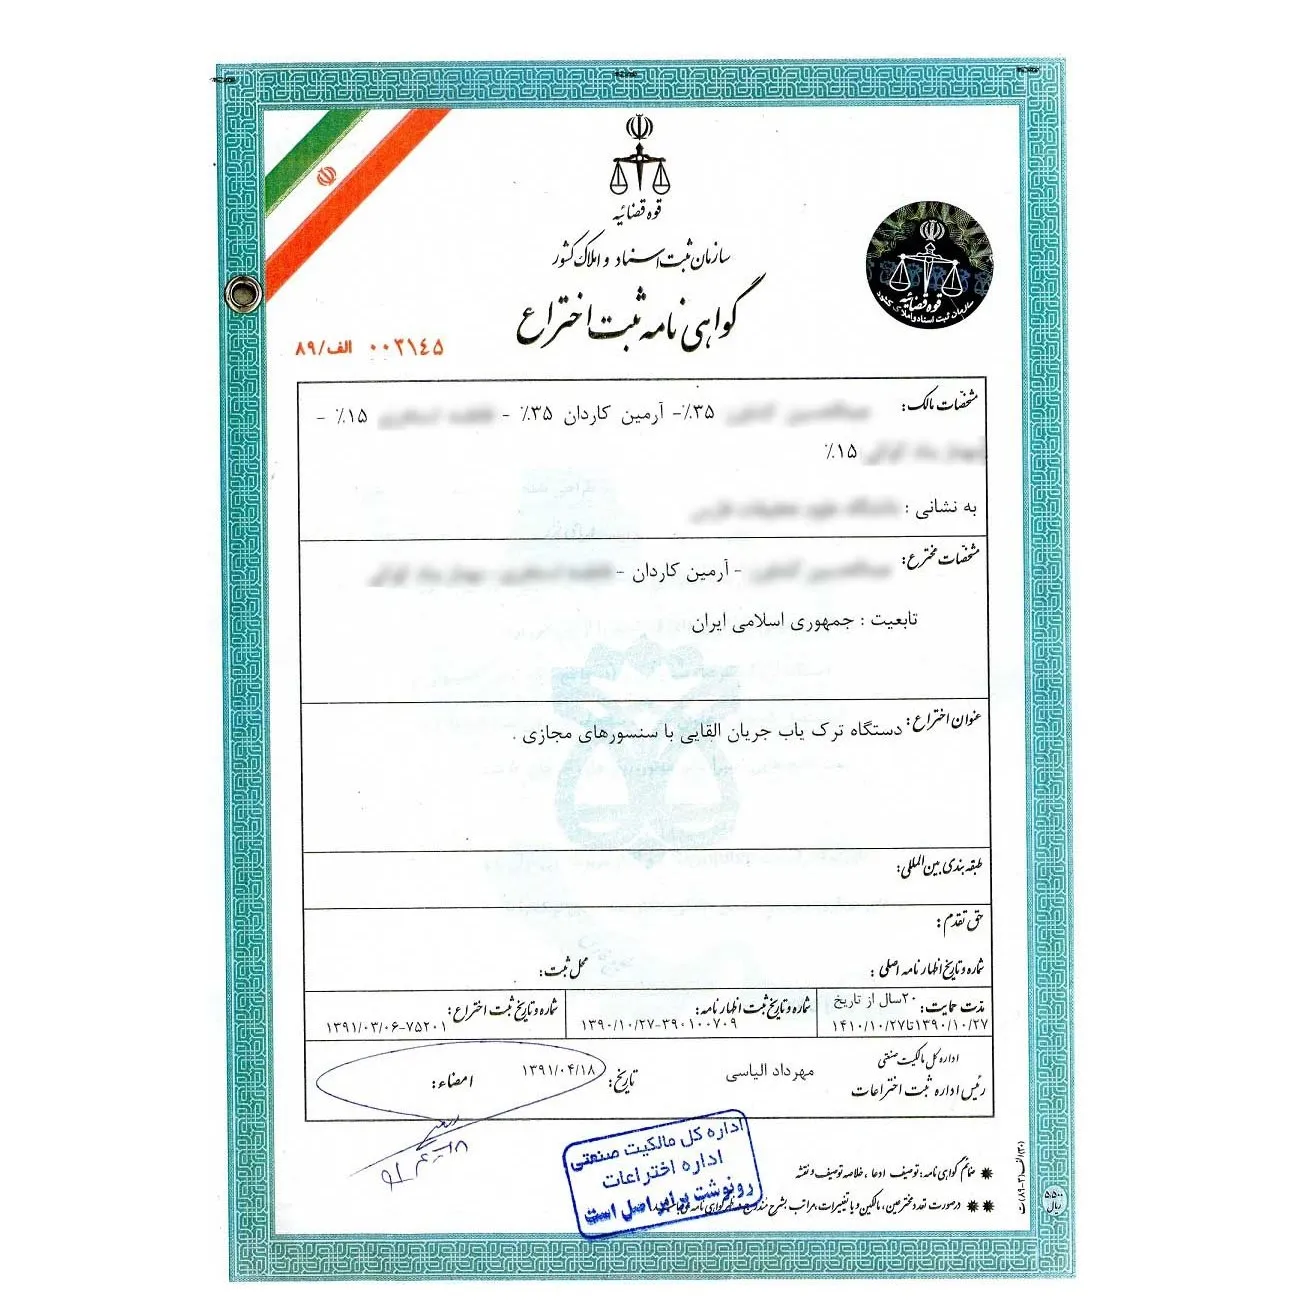 قوه قضائیه
سازمان ثبت اسناد و املاک کشور
گواهی نامه ثبت اختراع
۰۰۳۱۴۵ الف/۸۹
قوه قضائیه
سازمان ثبت اسناد و املاک کشور
مشخصات مالک: ۳۵٪- آرمین کاردان ۳۵٪ - ۱۵٪ -
۱۵٪
به نشانی :
مشخصات مخترع: - آرمین کاردان -
تابعیت : جمهوری اسلامی ایران
عنوان اختراع: دستگاه ترک یاب جریان القایی با سنسورهای مجازی .
طبقه بندی بین المللی:
حق تقدم:
شماره و تاریخ اظهار نامه اصلی : محل ثبت:
مدت حمایت: ۲۰سال از تاریخ
۱۳۹۰/۱۰/۲۷تا۱۴۱۰/۱۰/۲۷
شماره و تاریخ ثبت اظهار نامه:
۳۹۰۱۰۰۷۰۹-۱۳۹۰/۱۰/۲۷
شماره و تاریخ ثبت اختراع:
۷۵۲۰۱-۱۳۹۱/۰۳/۰۶
اداره کل مالکیت صنعتی
رئیس اداره ثبت اختراعات
مهرداد الیاسی
تاریخ: ۱۳۹۱/۰۴/۱۸
امضاء:
اداره کل مالکیت صنعتی
اداره اختراعات
رونوشت برابر اصل است
ضمائم گواهی نامه: توصیف ادعا ، خلاصه توصیف و نقشه
درصورت تعدد مخترعین، مالکین و یا تغییرات، مراتب بشرح مندرج
۵۵۰۰
ریال